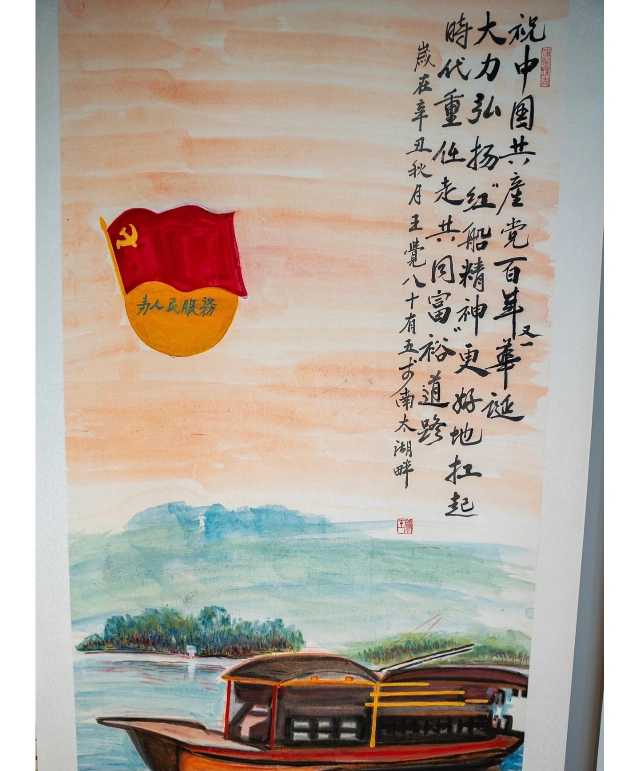 祝中国共產党百年華诞
又一
大力弘扬"红船精神"更好地扛起
時代重任走共同富裕道路
歲在辛丑秋月王覺八十有五于南太湖畔
为人民服務